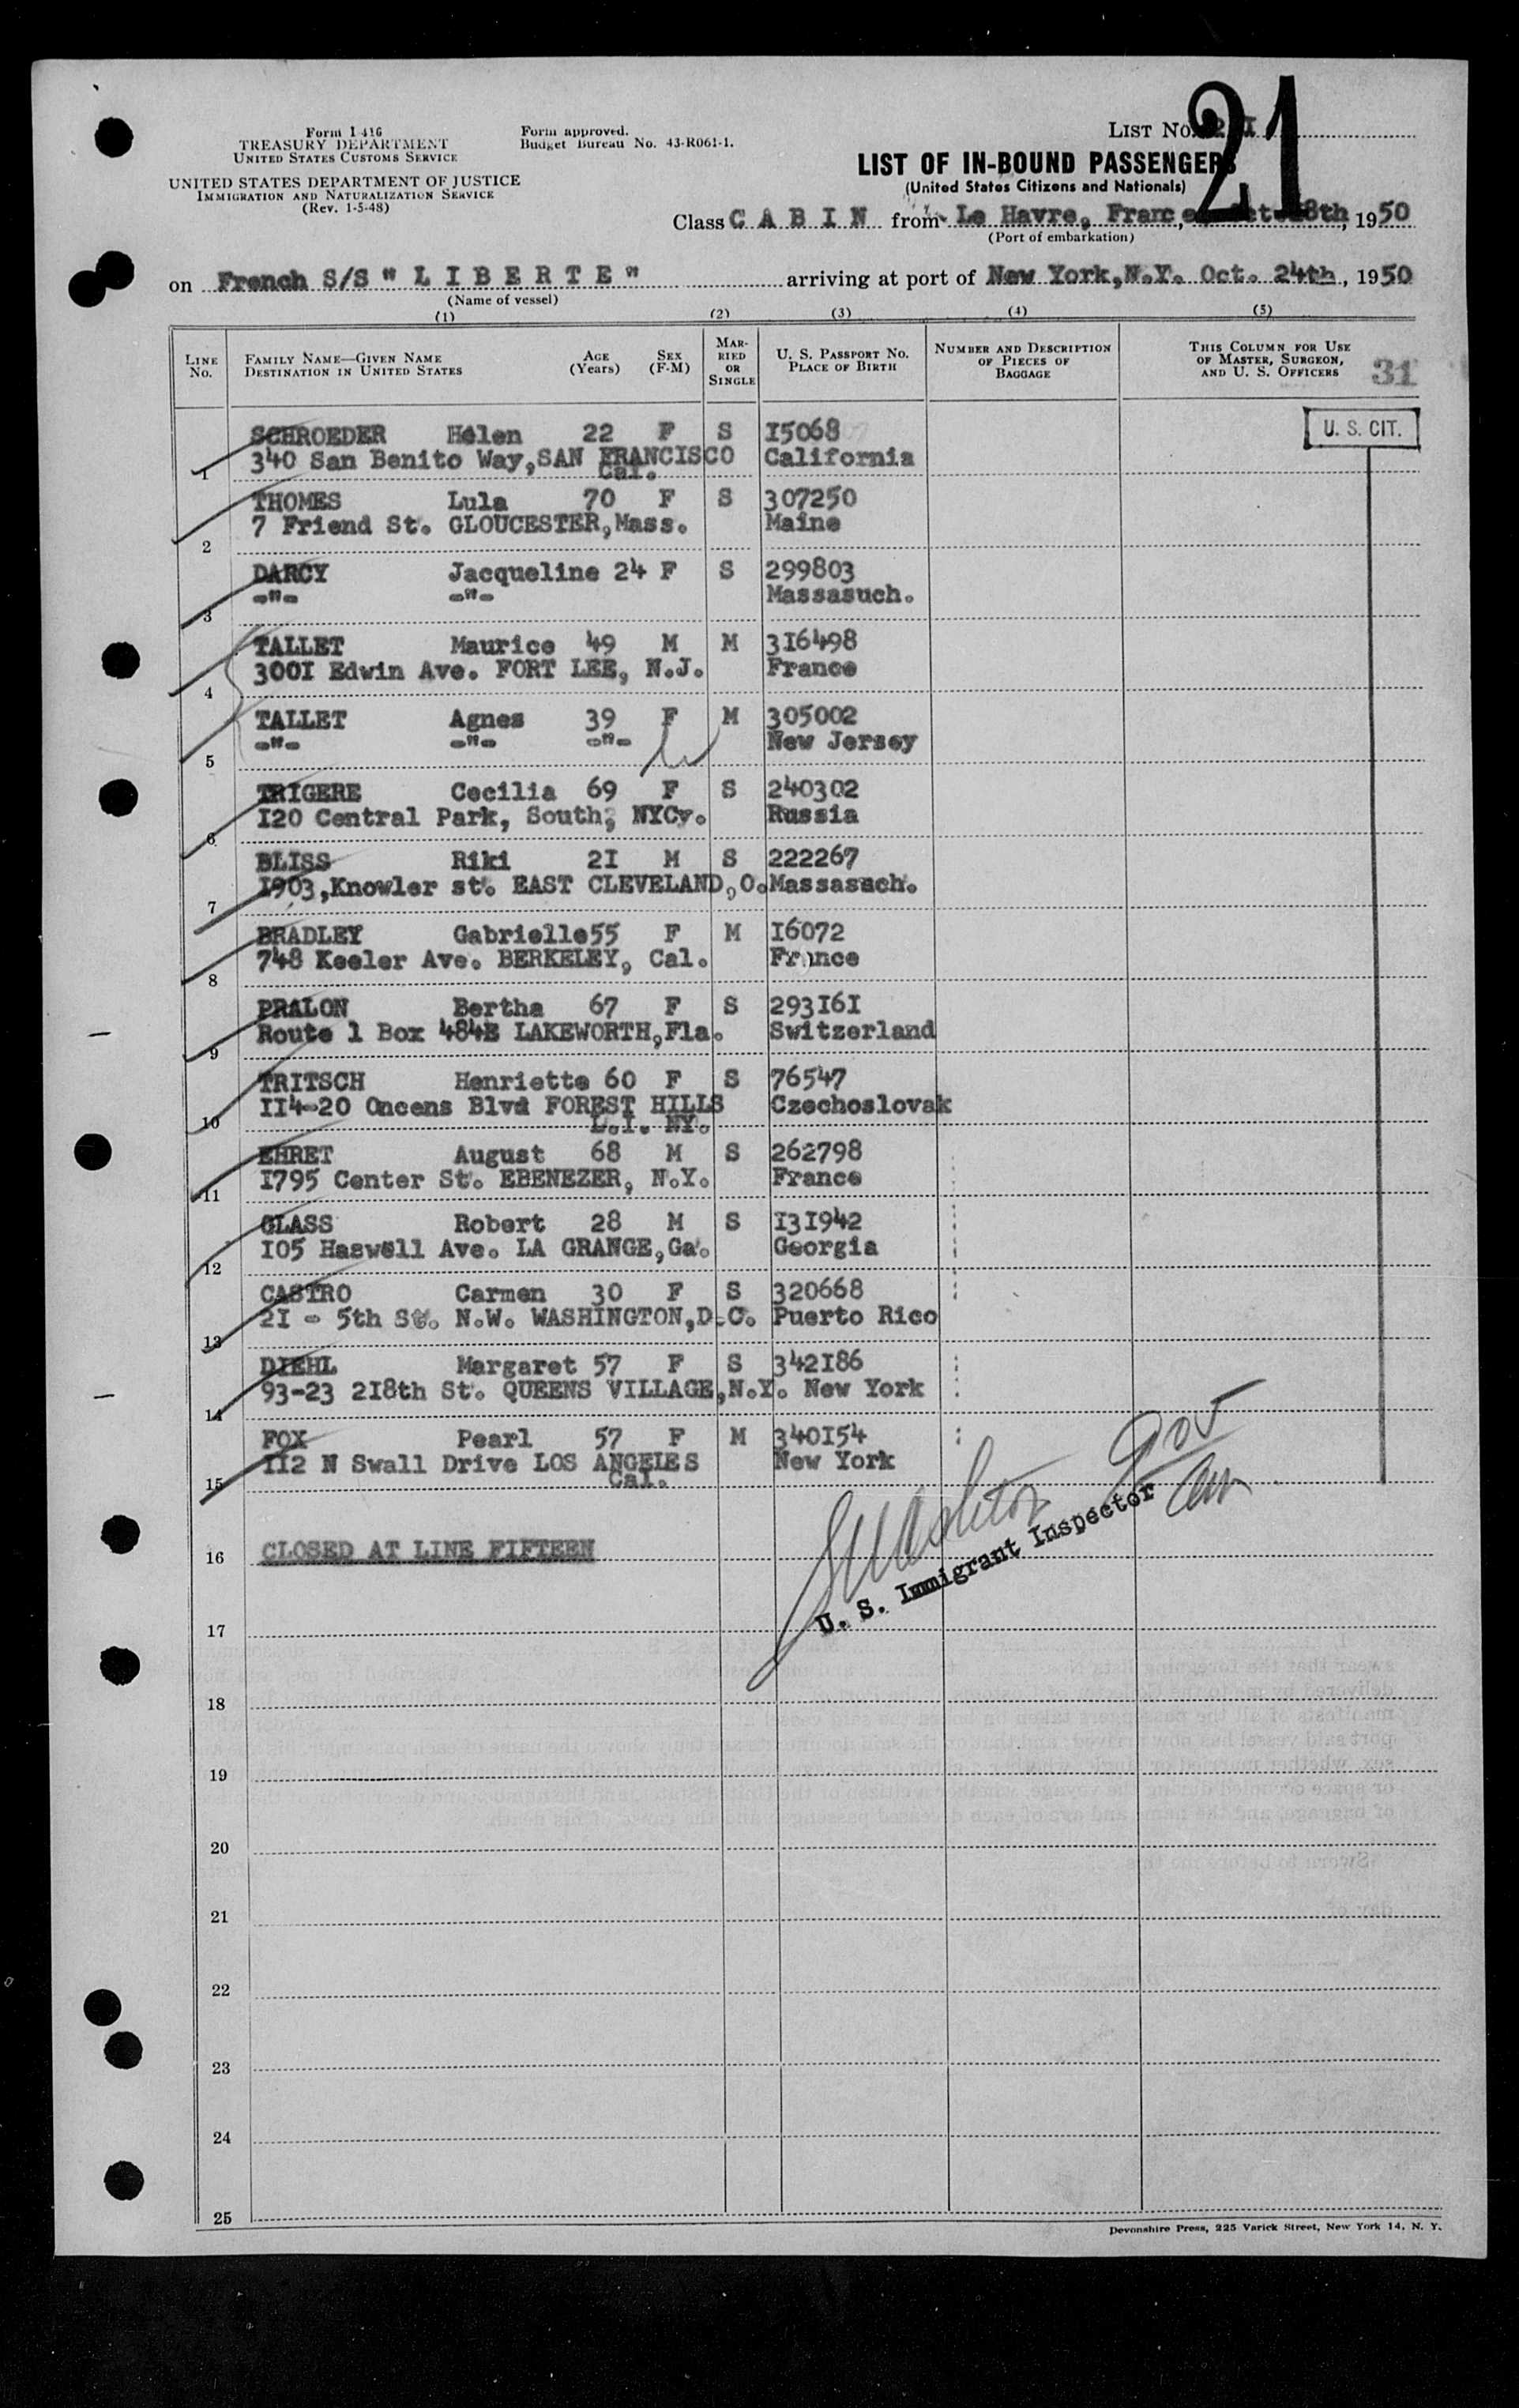 Form I 416
TREASURY DEPARTMENT
UNITED STATES CUSTOMS SERVICE
UNITED STATES DEPARTMENT OF JUSTICE
IMMIGRATION AND NATURALIZATION SERVICE
(Rev. 1-5-48)
Form approved.
Budget Bureau No. 43-R061-1.
LIST No.
21
LIST OF IN-BOUND PASSENGERS
(United States Citizens and Nationals)
Class C A B I N from Le Havre, France, 18th, 1950
(Port of embarkation)
on French S/S " L I B E R T E " arriving at port of New York,N.Y. Oct. 24th, 1950
(Name of vessel)
(1) (2) (3) (4) (5)
LINE No. FAMILY NAME—GIVEN NAME DESTINATION IN UNITED STATES AGE (Years) SEX (F-M) MARRIED OR SINGLE U. S. PASSPORT NO. PLACE OF BIRTH NUMBER AND DESCRIPTION OF PIECES OF BAGGAGE THIS COLUMN FOR USE OF MASTER, SURGEON, AND U. S. OFFICERS 31
U. S. CIT.
SCHROEDER Helen 22 F S 15068
1 340 San Benito Way,SAN FRANCISCO California
Cal.
THOMES Lula 70 F S 307250
7 Friend St. GLOUCESTER,Mass. Maine
2
DARCY Jacqueline 24 F S 299803
-"- -"- Massasuch.
3
TALLET Maurice 49 M M 316498
3001 Edwin Ave. FORT LEE, N.J. France
4
TALLET Agnes 39 F M 305002
-"- -"- -"- New Jersey
5
TRIGERE Cecilia 69 F S 240302
120 Central Park, South, NYCy. Russia
6
BLISS Riki 21 M S 222267
1903,Knowler st. EAST CLEVELAND,O. Massasuch.
7
BRADLEY Gabrielle 55 F M 16072
748 Keeler Ave. BERKELEY, Cal. France
8
PRALON Bertha 67 F S 293161
Route 1 Box 484E LAKEWORTH,Fla. Switzerland
9
TRITSCH Henriette 60 F S 76547
114-20 Oncens Blvd FOREST HILLS Czechoslovak
10 L.I. NY.
EHRET August 68 M S 262798
1795 Center St. EBENEZER, N.Y. France
11
GLASS Robert 28 M S 131942
105 Haswell Ave. LA GRANGE,Ga. Georgia
12
CASTRO Carmen 30 F S 320668
21 - 5th St. N.W. WASHINGTON,D.C. Puerto Rico
13
DIEHL Margaret 57 F S 342186
93-23 218th St. QUEENS VILLAGE,N.Y. New York
14
FOX Pearl 57 F M 340154
112 N Swall Drive LOS ANGELES New York
15 Cal.
16 CLOSED AT LINE FIFTEEN
U. S. Immigrant Inspector
17
18
19
20
21
22
23
24
25
Devonshire Press, 225 Varick Street, New York 14, N. Y.